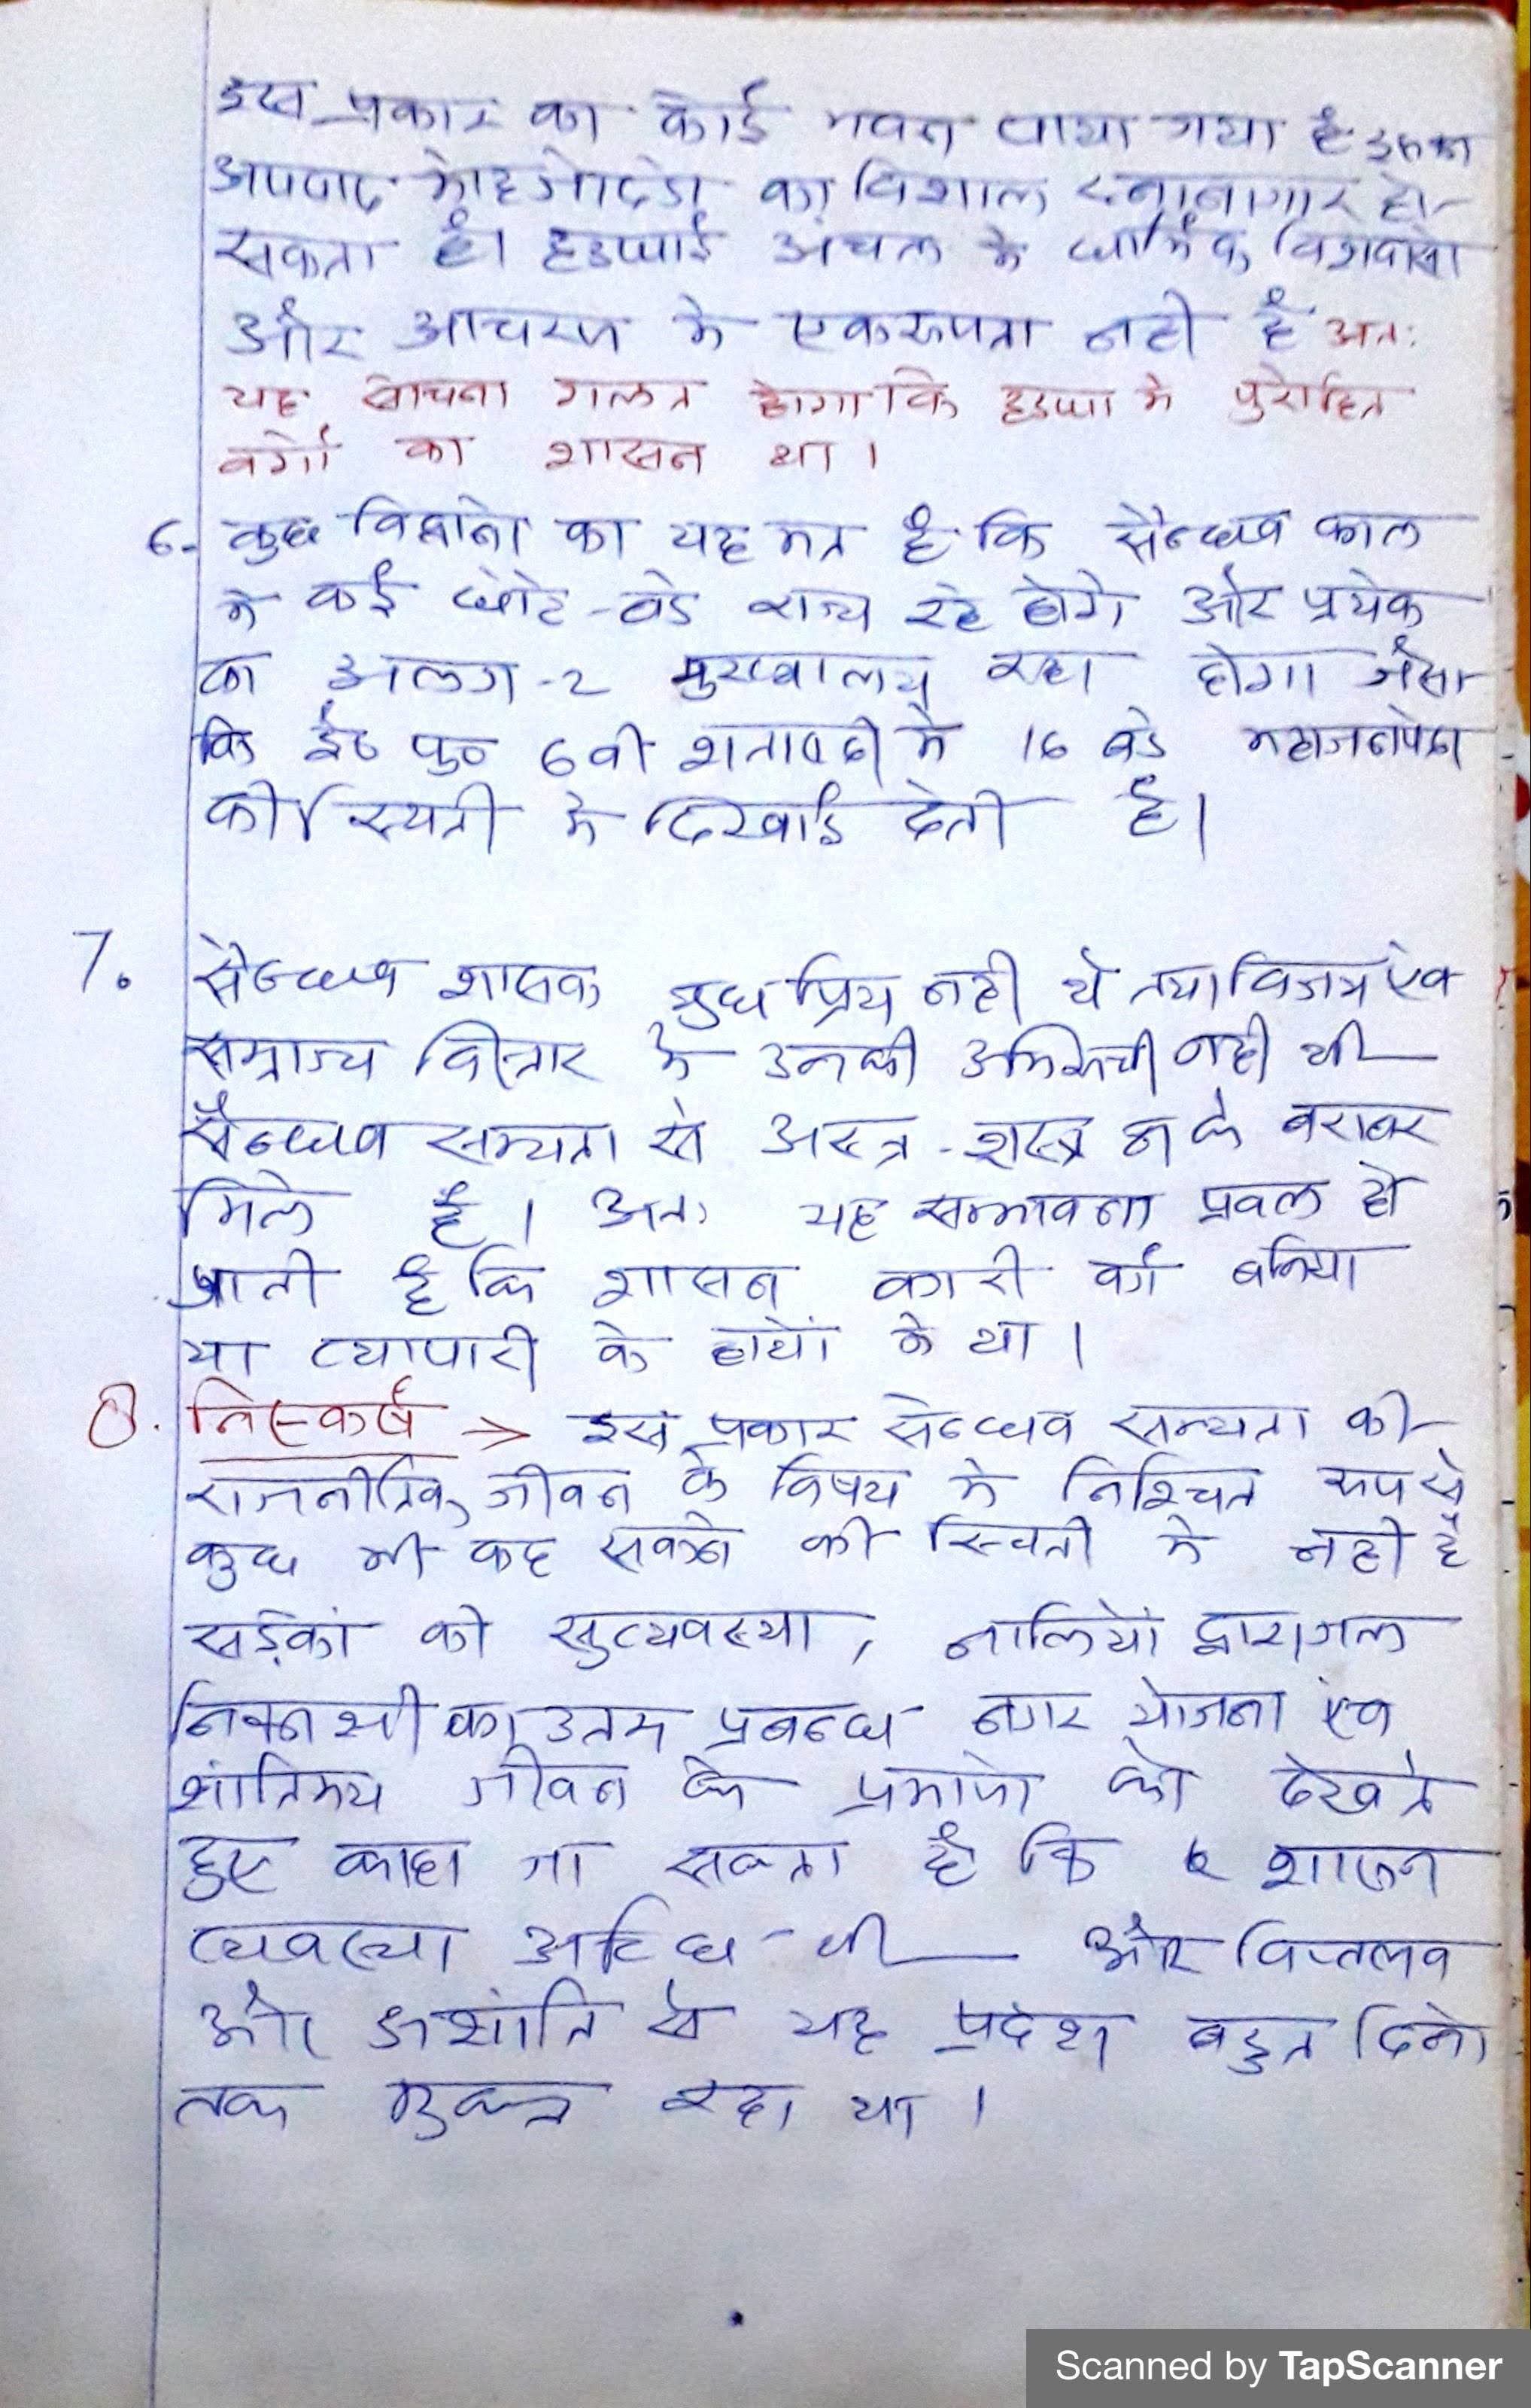 इस प्रकार का कोई भवन पाया गया है इसका
अपवाद मोहनजोदडो का विशाल स्नानागार हो
सकता है। हडप्पाई अंचल मे धार्मिक विश्वासो
और आचरण मे एकरूपता नही है अत:
यह सोचना गलत होगा कि हडप्पा मे पुरोहित
वर्गो का शासन था।
6. कुछ विद्वानो का यह मत है कि सैन्धव काल
मे कई छोटे-बडे राज्य रहे होगे और प्रत्येक
का अलग-2 मुख्यालय रहा होगा जैसा
कि ई० पु० 6वी शताब्दी मे 16 बडे महाजनपदो
की स्थिती मे दिखाई देती है।
7. सैन्धव शासक युध प्रिय नही थे तथा विजय एंव
सम्राज्य विस्तार मे उनकी अभिरूची नही थी
सैन्धव सभ्यता से अस्त्र-शस्त्र न के बराबर
मिले है। अत: यह सम्भावना प्रबल हो
जाती है कि शासन कारी वर्ग बनिया
या व्यापारी के हाथों मे था।
8. निस्कर्ष → इस प्रकार सैन्धव सभ्यता की
राजनीतिक जीवन के विषय मे निश्चित रूप से
कुछ भी कह सकने की स्थिती मे नही है
सड़कों की सुव्यवस्था, नालियों द्वारा जल
निकासी का उतम प्रबन्ध नगर योजना एंव
शांतिमय जीवन के प्रमाणो को देखते
हुए कहा जा सकता है कि शासन
व्यवस्था थी और
और अशांति से यह प्रदेश बहुत दिनो
तक मुक्त रहा था।
Scanned by TapScanner